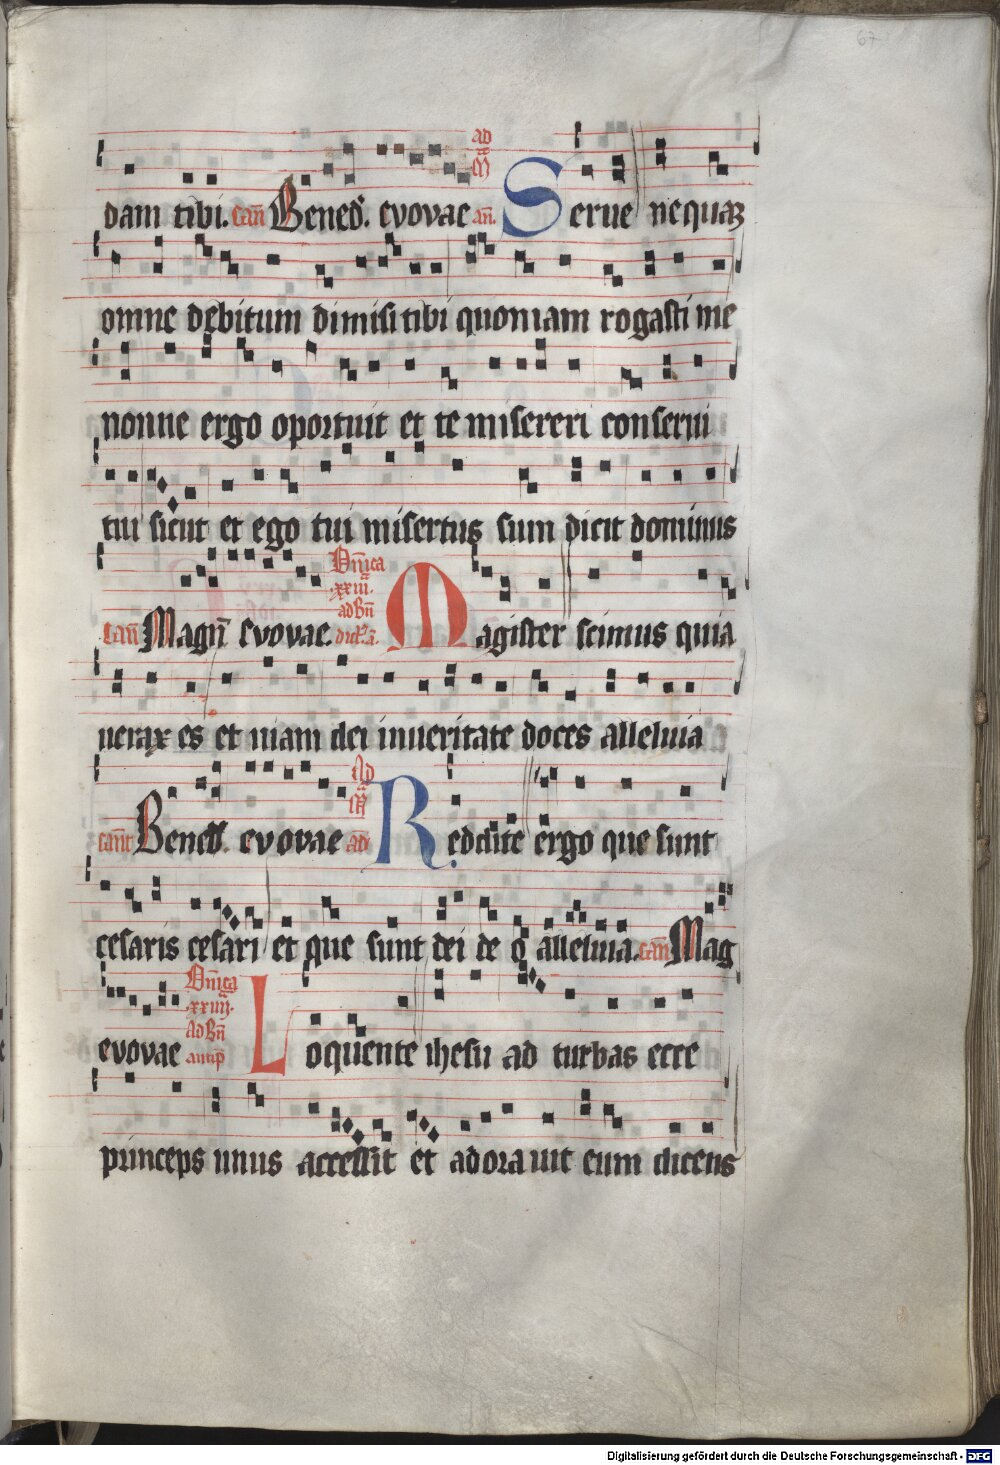 67
ad
dam tibi. can Bened. evovae an. Serue nequaz
omne debitum dimisi tibi quoniam rogasti me
nonne ergo oportuit et te misereri conserui
tui sicut et ego tui misertus sum dicit dominus
Dnica
xxiii.
ad Bn
can Magn evovae. Magister scimus quia
uerax es et uiam dei inueritate doces alleluia
Ad
cant Bened. evovae an Reddite ergo que sunt
cesaris cesari et que sunt dei de o alleluia. can Mag
Dnica
xxiiii.
Ad Bn
evovae antip Loquente ihesu ad turbas ecce
princeps unus accessit et adorauit eum dicens
Digitalisierung gefördert durch die Deutsche Forschungsgemeinschaft - DFG